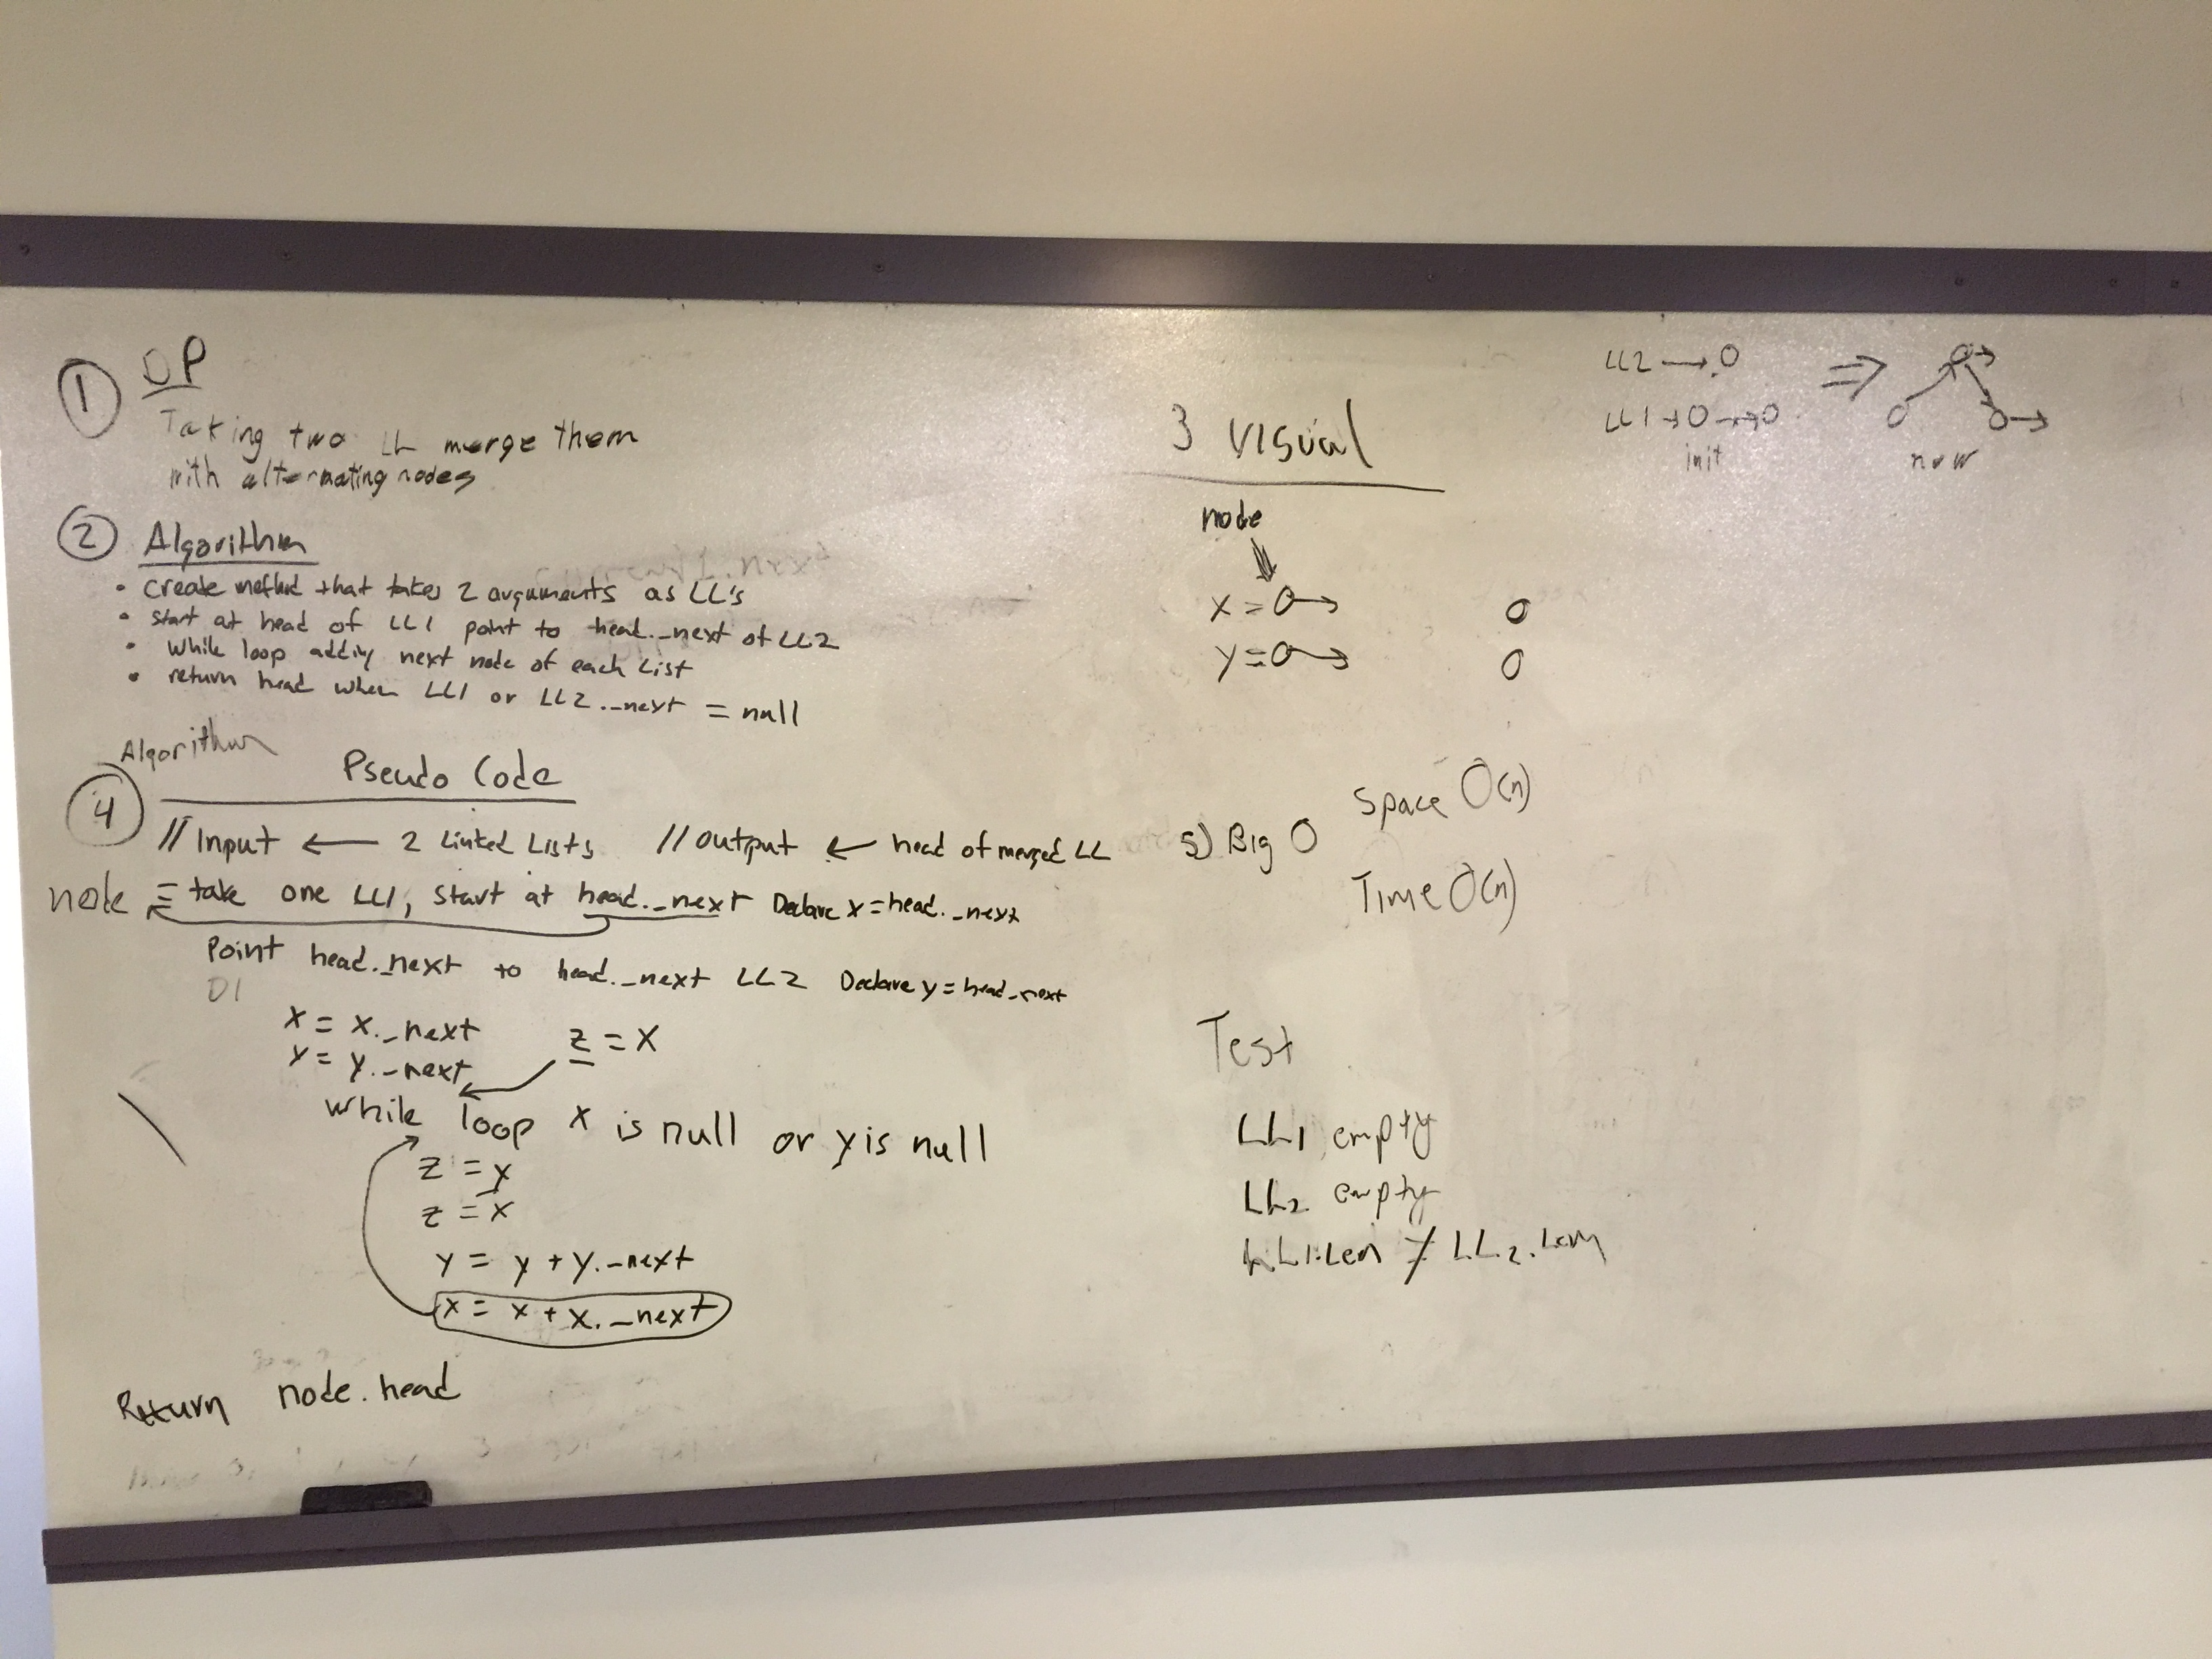 1 OP
Taking two LL merge them
with alternating nodes
2 Algorithm
• create method that takes 2 arguments as LL's
• start at head of LL1 point to head._next of LL2
• while loop adding next node of each List
• return head when LL1 or LL2._next = null
Algorithm
4 Pseudo Code
// Input ← 2 Linked Lists // output ← head of merged LL
node = take one LL1, start at head._next Declare x = head._next
Point head._next to head._next LL2 Declare y = head._next
D1
x = x._next
y = y._next
z = x
while loop x is null or y is null
z = y
z = x
y = y + y._next
x = x + x._next
Return node.head
3 Visual
node
x = O→
O
y = O→
O
LL2 → O
LL1 → O → O
init
⇒
new
5) Big O
Space O(n)
Time O(n)
Test
LL1 empty
LL2 empty
LL1.Len ≠ LL2.Len